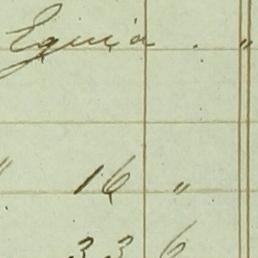 Eguia . "
" 16 "
33 6